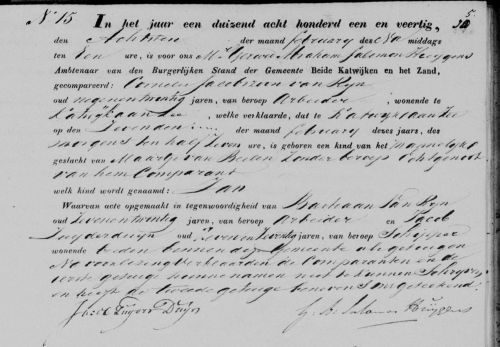 N. 15 In het jaar een duizend acht honderd een en veertig,
den Achtsten der maand february des Na middags
ten Een ure, is voor ons Mr Gerard Abraham Salomon Kuygens
Ambtenaar van den Burgerlijken Stand der Gemeente Beide Katwijken en het Zand,
gecompareerd: Cornelis Jacobszoon van Ryn
oud negenentwintig jaren, van beroep Arbeider, wonende te
Katwijk aan Zee, welke verklaarde, dat te Katwyk aan Zee
op den Zevenden der maand february dezes jaars, des
morgens ten half Zeven ure, is geboren een kind van het mannelyk
geslacht van Maartje van Beelen Zonder beroep Echtgenoot
van hem Comparant
welk kind wordt genaamd: Jan
Waarvan acte opgemaakt in tegenwoordigheid van Van Ryn
oud Zevenentwintig jaren, van beroep Arbeider en Jacob
Zuyderduyn oud jaren, van beroep Schipper
wonende beiden binnen der Gemeente als getuigen
Na voorlezing verklaarden de Comparanten en de
eerste getuige hunne namen niet te kunnen Schryven
en heeft de tweede getuige benevens ons geteekend:
Duyn G. A. Salomon Kuygens